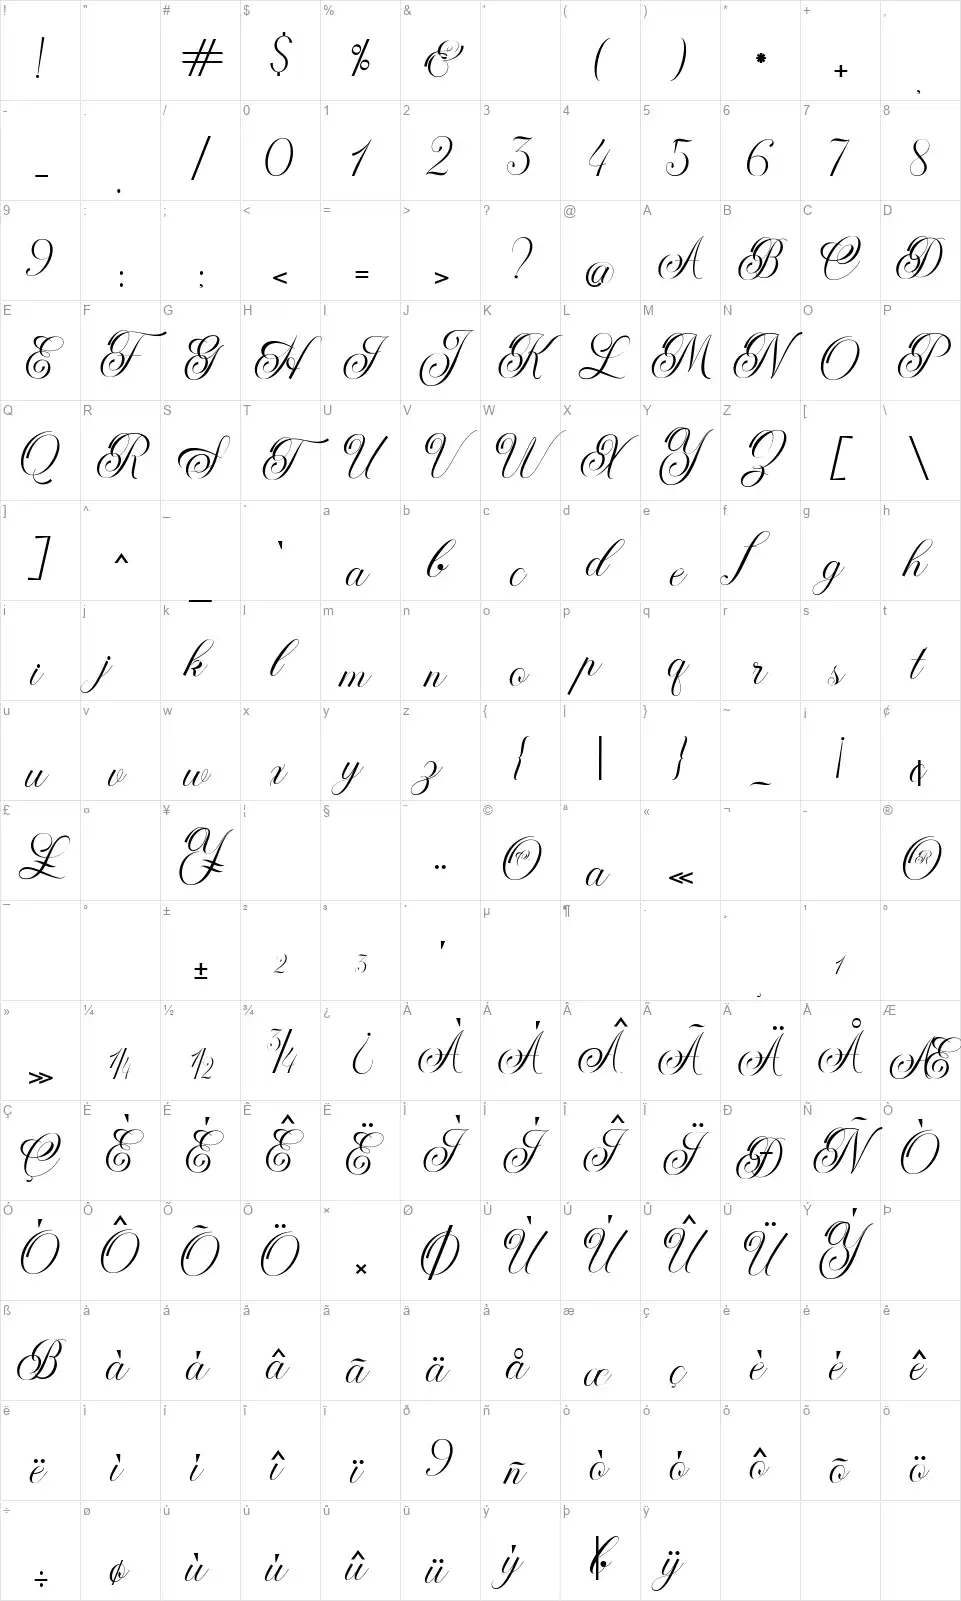 ! " # $ % & ' ( ) * + ,
! # $ % & ( ) * + ,
- . / 0 1 2 3 4 5 6 7 8
- . / 0 1 2 3 4 5 6 7 8
9 : ; < = > ? @ A B C D
9 : ; < = > ? @ A B C D
E F G H I J K L M N O P
E F G H I J K L M N O P
Q R S T U V W X Y Z [ \
Q R S T U V W X Y Z [ \
] ^ _ ` a b c d e f g h
] ^ _ ` a b c d e f g h
i j k l m n o p q r s t
i j k l m n o p q r s t
u v w x y z { | } ~ ¡ ¢
u v w x y z { | } ~ ¡ ¢
£ ¤ ¥ ¦ § ¨ © ª « ¬ - ®
£ ¥ ¨ © a « ®
¯ ° ± ² ³ ´ µ ¶ · ¸ ¹ º
± 2 3 ´ ¸ 1
» ¼ ½ ¾ ¿ À Á Â Ã Ä Å Æ
» ¼ ½ ¾ ¿ À Á Â Ã Ä Å Æ
Ç È É Ê Ë Ì Í Î Ï Ð Ñ Ò
Ç È É Ê Ë Ì Í Î Ï Ð Ñ Ò
Ó Ô Õ Ö × Ø Ù Ú Û Ü Ý Þ
Ó Ô Õ Ö × Ø Ù Ú Û Ü Ý
ß à á â ã ä å æ ç è é ê
B à á â ã ä å æ ç è é ê
ë ì í î ï ð ñ ò ó ô õ ö
ë ì í î ï 9 ñ ò ó ô õ ö
÷ ø ù ú û ü ý þ ÿ
÷ ø ù ú û ü ý þ ÿ